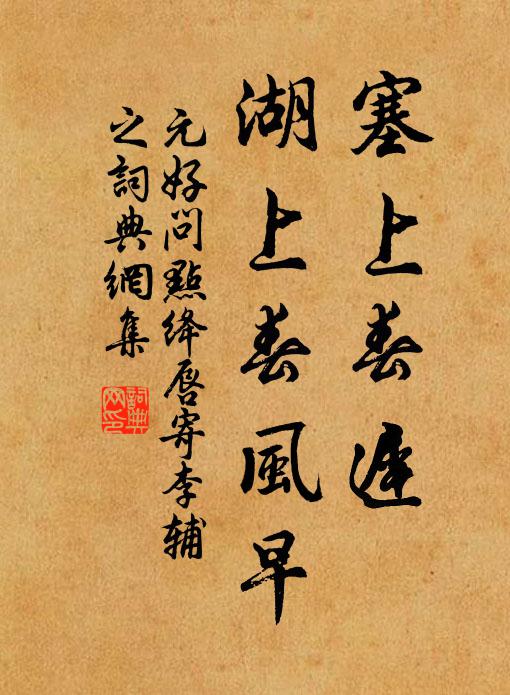 塞上春遲
湖上春風早
元好問點絳唇寄李輔
之詞典網集
詞典網印